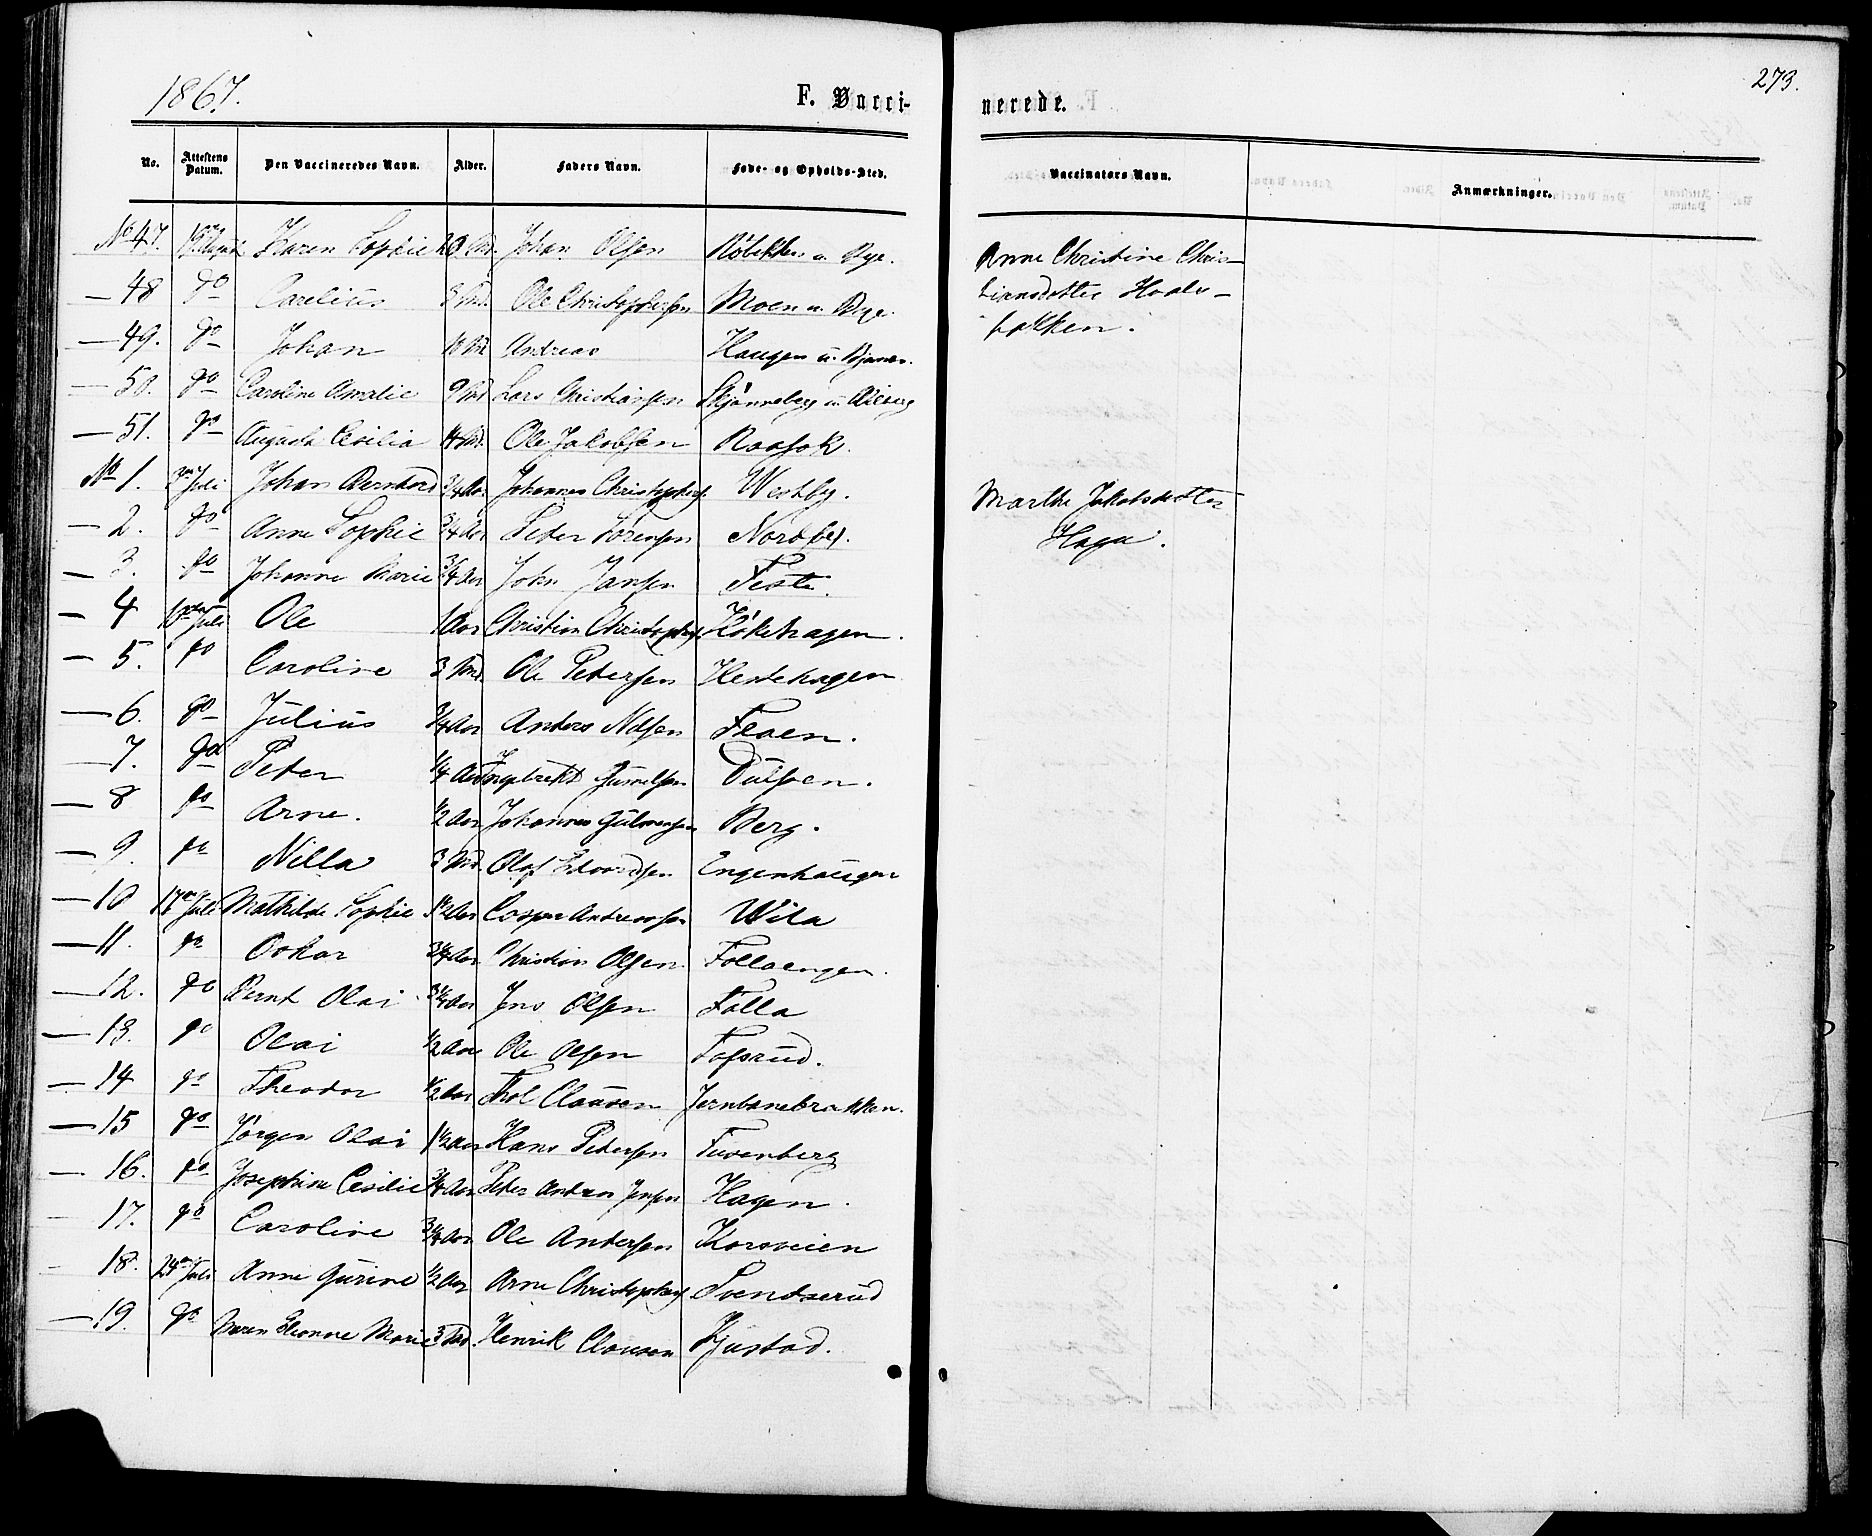 1867.
F. Vacci-
nerede.
273.
No. Attestens Datum. Den Vaccineredes Navn. Alder. Faders Navn. Føde- og Opholds-Sted. Vaccinators Navn. Anmærkninger.
No 47. August Karen Sophie Md. Johan Olsen u. Rye. Anne Christine Chris-
48 do Carelius 3 Md. Ole Christophersen Moen u. Rye. tiansdatter
49. do Johan 10 Md. Andreas Haugen u.
50. do Caroline Amalie 9 Md Lars Christiansen Skjønneberg u.
51. do Augusta Cesilia 4 Md. Ole Jakobsen Raasok.
No 1. Juli Johan Bernhard 3/4 Aar Johannes Christophers. Westby. Marthe Jakobsdatter
2. do Anne Sophie 3/4 Aar Peter Sørensen Nordby. Haga.
3. do Johanne Marie 3/4 Aar John Jansen Feste.
4 10de Juli Ole 1 Aar Christian Christophers. Høkehagen.
5. do Caroline 3 Md. Ole Petersen Hestehagen
6. do Julius 3/4 Aar Anders Nilsen Floen.
7. do Peter 1/4 Aar Ingebrekt Gunnelsen
8 do Arne. 1/2 Aar Johannes Berg.
9. do Nilla 3 Md. Olaf Edvardsen Engenhaugen
10 17de Juli Mathilde Sophie 1 1/2 Aar Casper Andreassen Wila
11. do Oskar 3/4 Aar Christian Olsen Follaengen.
12. do Bernt Olai 3/4 Aar Jens Olsen Folla
13. do Olai 1/2 Aar Ole Olsen Fossrud.
14 do Theodor 1/2 Aar Thol Clausen Jernbanebrakken.
15 do Jørgen Olai 1 1/2 Aar Hans Petersen Tuvenberg
16. do Josephine Cesilie 3/4 Aar Peter Andreas Jensen Hagen.
17. do Caroline 3/4 Aar Ole Andersen Korsveien
18. 24de Juli Anne Gurine 1/2 Aar Arne Christophers. Svendserud
19. do Maren Elionne Marie 3 Md. Henrik Clausen Kjustad.